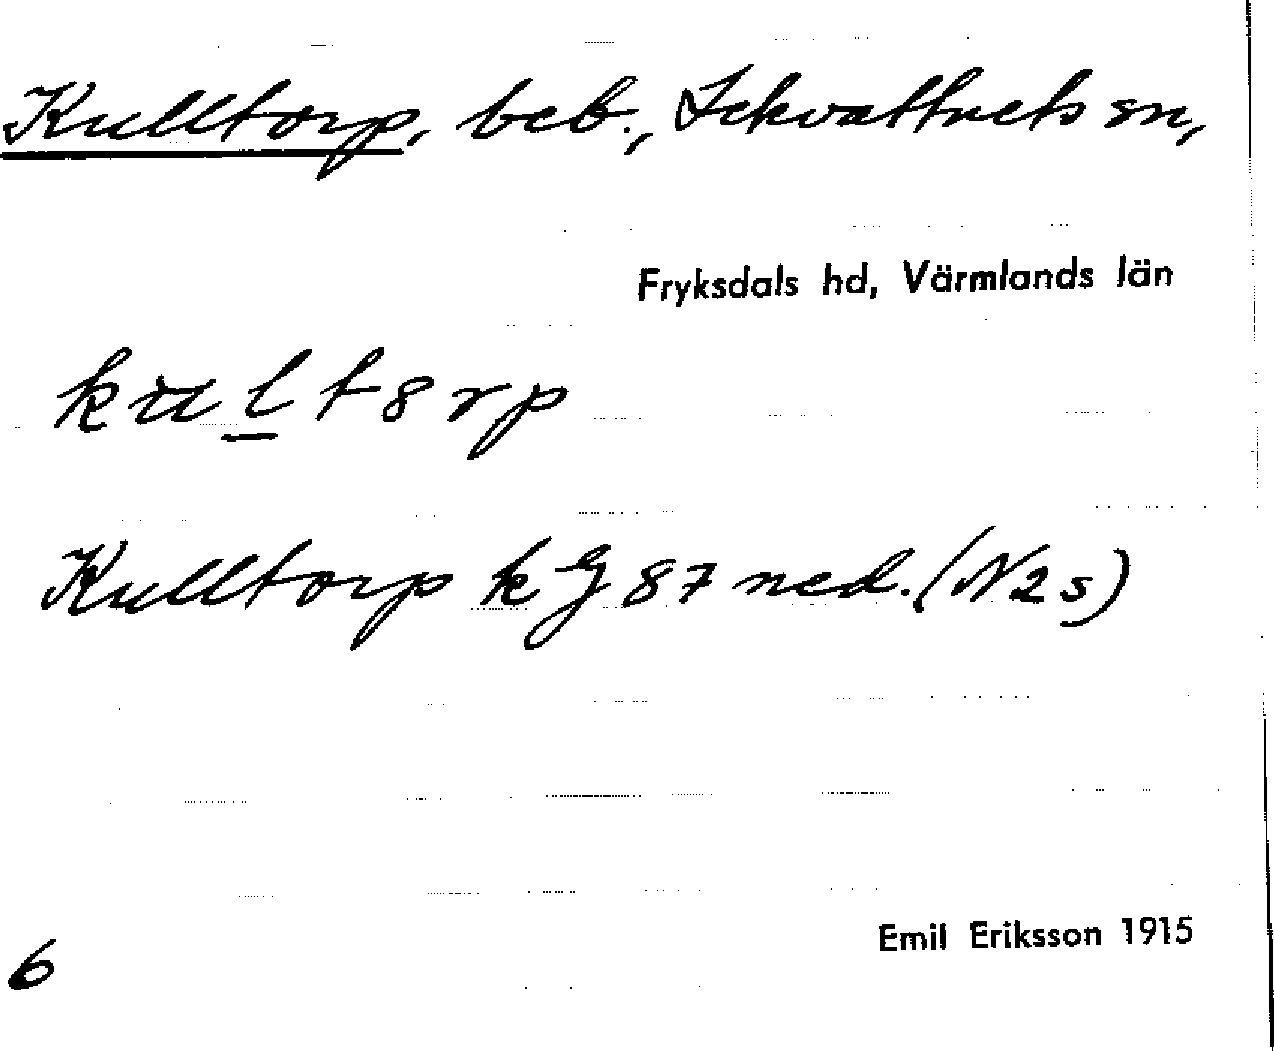 Kulltorp, beb., Lekvattnets sn,
Fryksdals hd, Värmlands län
Kulltorp k G 87 ned. (N2s)
Emil Eriksson 1915
6